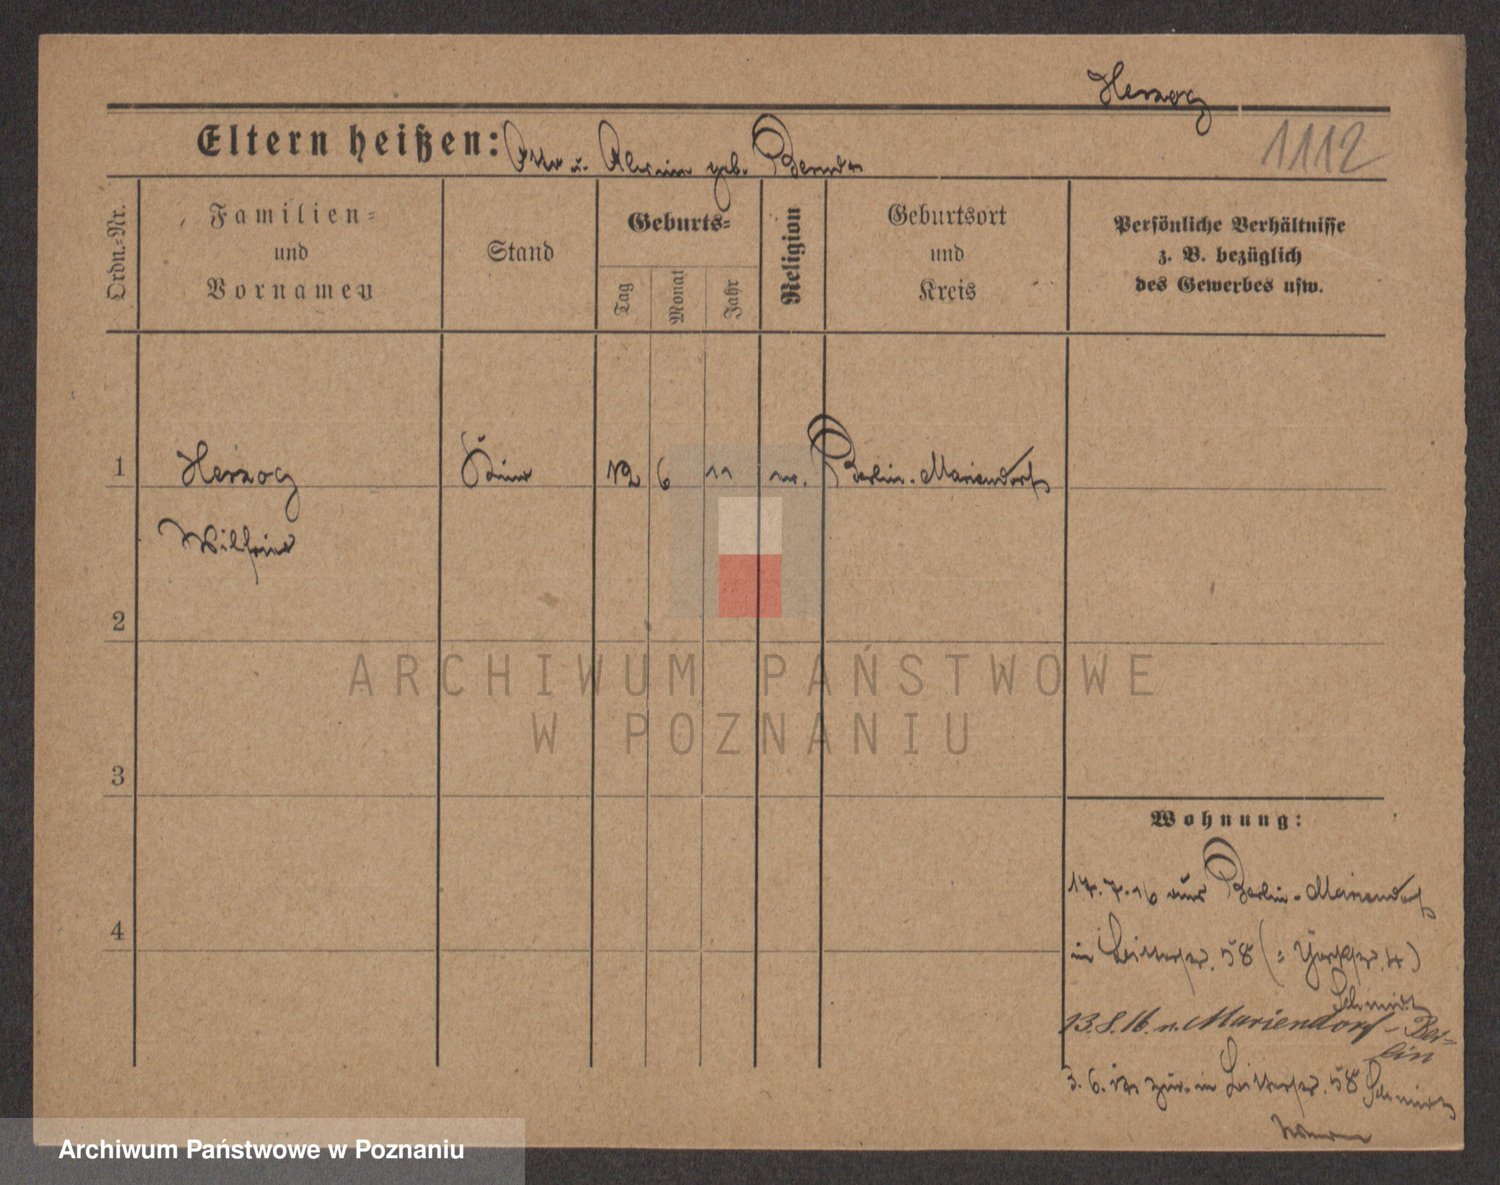 Herzog
1112
Eltern heißen: Otto u. Alwine geb. Berndt
Ordn.=Nr.
Familien=
und
Vornamen
Stand
Geburts=
Tag
Monat
Jahr
Religion
Geburtsort
und
Kreis
Persönliche Verhältnisse
z. B. bezüglich
des Gewerbes usw.
1
Herzog
Kind
12
6
11
ev.
Berlin-Mariendorf
Wilfried
2
3
4
Wohnung:
17.7.16 aus Berlin-Mariendorf
in 58 (: Yorkstr. 4)
Schmidt
13.8.16 n. Mariendorf-Ber=
lin
3.6. zur. in 58 Schmidt
ARCHIWUM PAŃSTWOWE
W POZNANIU
Archiwum Państwowe w Poznaniu